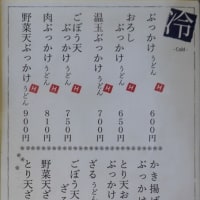 冷
-Cold-
ぶっかけうどん H 600円
おろしぶっかけうどん H 650円
温玉ぶっかけうどん H 700円
ごぼう天ぶっかけうどん H 750円
肉ぶっかけうどん H 810円
野菜天ぶっかけうどん H 900円
かき揚げ
ぶっかけ
とり天お
ぶっかけ
ざるうどん
ごぼう天
ざる
野菜天ざ
とり天ざ